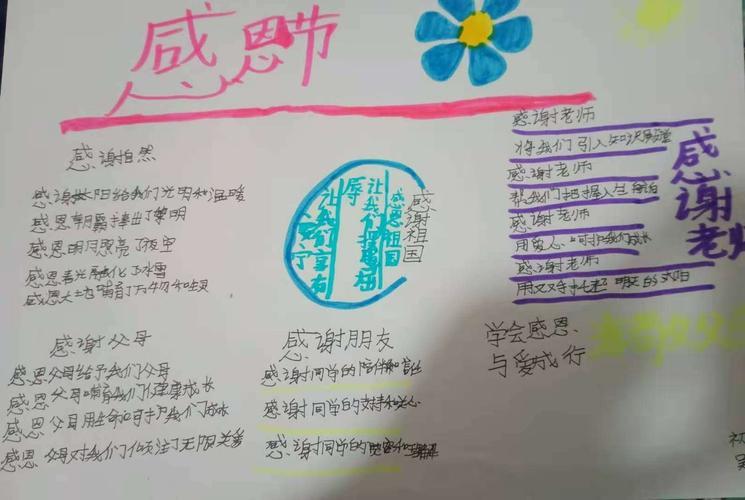 感恩节
感谢自然
感谢太阳给我们光明和温暖
感恩朝霞捧出了黎明
感恩明月照亮了夜空
感恩春光融化了冰雪
感恩大地哺育了万物和
感谢父母
感恩父母给予我们父母
感恩父母哺育我们健康成长
感恩父母用生命呵护我们成长
感恩父母对我们倾注了无限关爱
感谢祖国
感恩祖国
让我们
辱
让我们享有
宁
感谢朋友
感谢同学的陪伴和
感谢同学的支持和关心
感谢同学的宽容和理解
感谢老师
感谢老师
将我们引入知识殿堂
感谢老师
帮我们把握人生
感谢老师
用爱心呵护我们成长
感谢老师
用双手托起明天的太阳
学会感恩
与爱成行
初